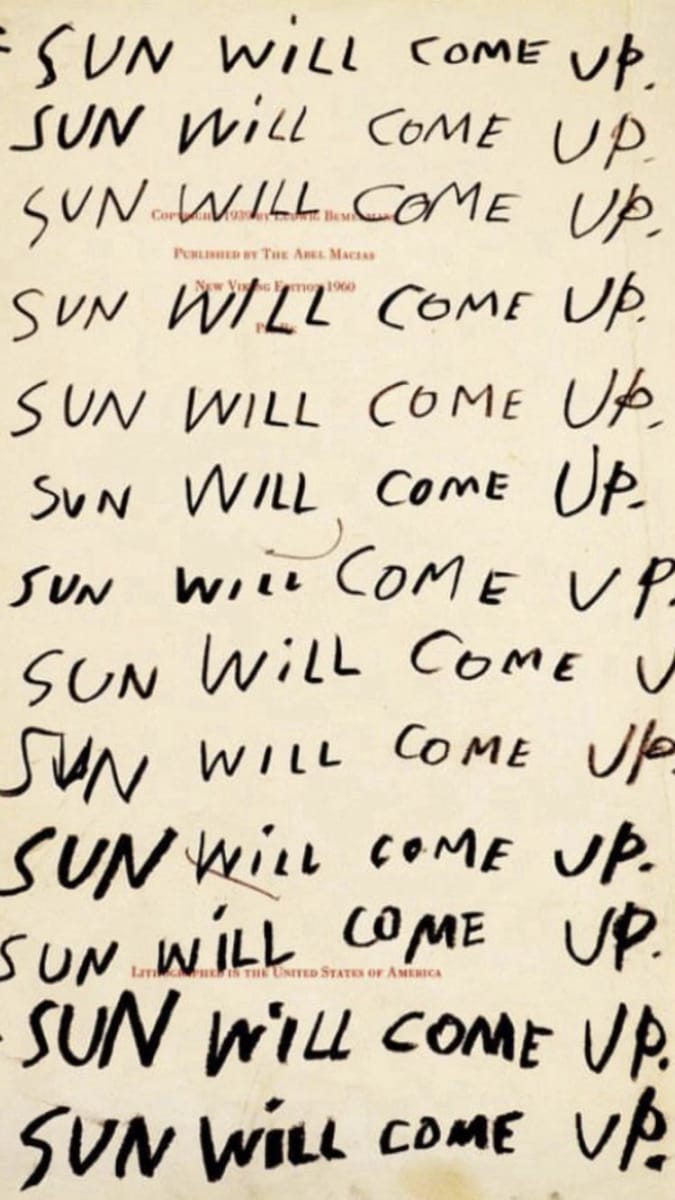 SUN WiLL COME UP.
SUN WiLL COME UP.
SUN WILL COME UP.
COPYRIGHT 1939 BY LUDWIG BEMELMANS
PUBLISHED BY THE ABEL MACIAS
NEW VIKING EDITION 1960
SUN WILL COME UP.
SUN WILL COME UP.
SUN WILL COME UP.
SUN WILL COME UP.
SUN WiLL COME U
SUN WILL COME UP.
SUN WiLL COME UP.
SUN WiLL COME UP.
LITHOGRAPHED IN THE UNITED STATES OF AMERICA
SUN WiLL COME UP.
SUN WiLL COME UP.